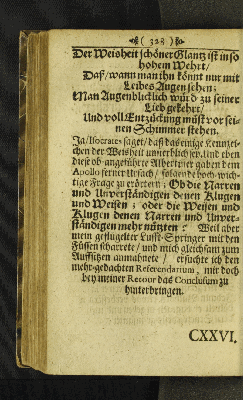 ( 328 )
Der Weisheit schöner Glantz ist in so
hohem Wehrt/
Daß/ wann man ihn könnt nur mit
Leibes Augen sehen;
Man Augenblicklich würd zu seiner
Lieb gekehrt/
Und voll Entzückung müst vor sei-
nen Schimmer stehen.
Ja/ Isocrates sagt/ daß das einige Kennzei-
chen der Weisheit unsterblich sey. Und eben
diese ob-angeführte Allbertiner gaben dem
Apollo ferner Ursach/ folgende hoch-wich-
tige Frage zu erörtern: Ob die Narren
und Unverständigen denen Klugen
und Weisen / oder die Weisen und
Klugen denen Narren und Unver-
ständigen mehr nützten? Weil aber
mein geflügelter Lufft-Springer mit den
Füssen scharrete/ und mich gleichsam zum
Auffsitzen anmahnete/ ersuchte ich den
mehr-gedachten Referendarium, mir doch
bey meiner Retour das Conclusum zu
hinterbringen.
CXXVI.